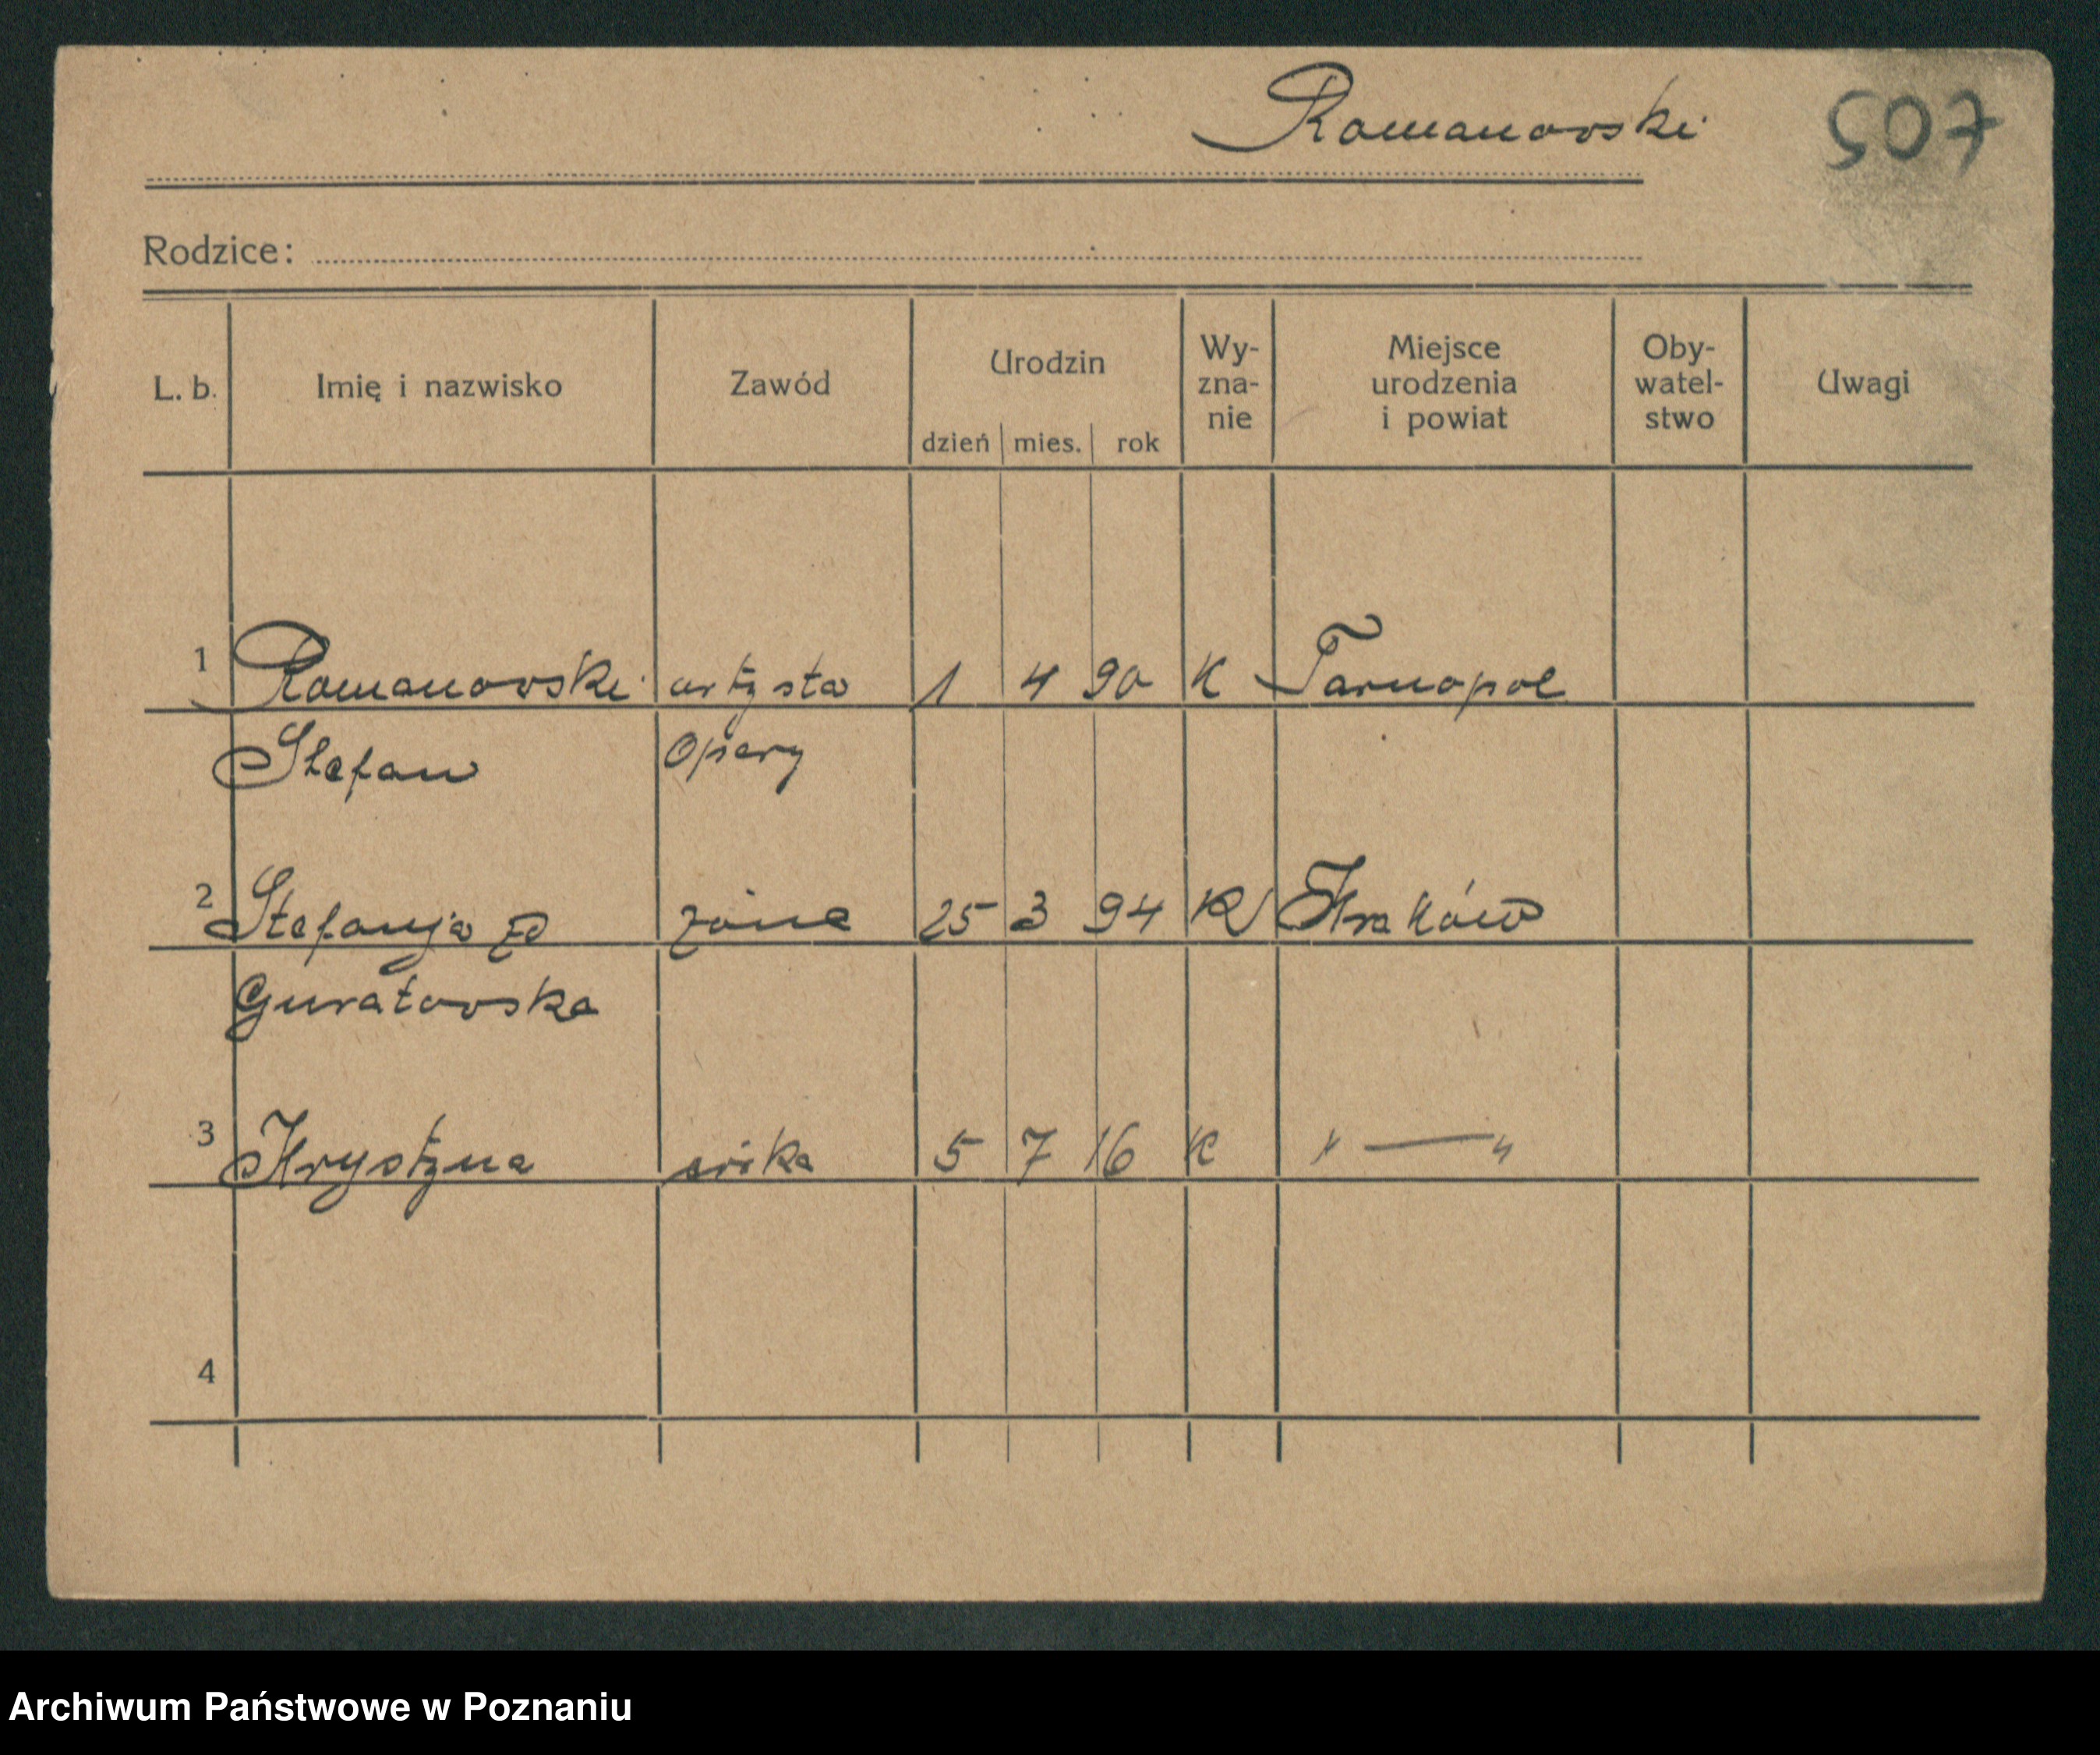 Romanowski
507
Rodzice:
L. b. Imię i nazwisko Zawód Urodzin dzień mies. rok Wy-zna-nie Miejsce urodzenia i powiat Oby-watel-stwo Uwagi
1 Romanowski artysta 1 4 90 K Tarnopol
Stefan Opery
2 Stefanja zd żona 25 3 94 K Kraków
Guratowska
3 Krystyna córka 5 7 16 K " — "
4
Archiwum Państwowe w Poznaniu